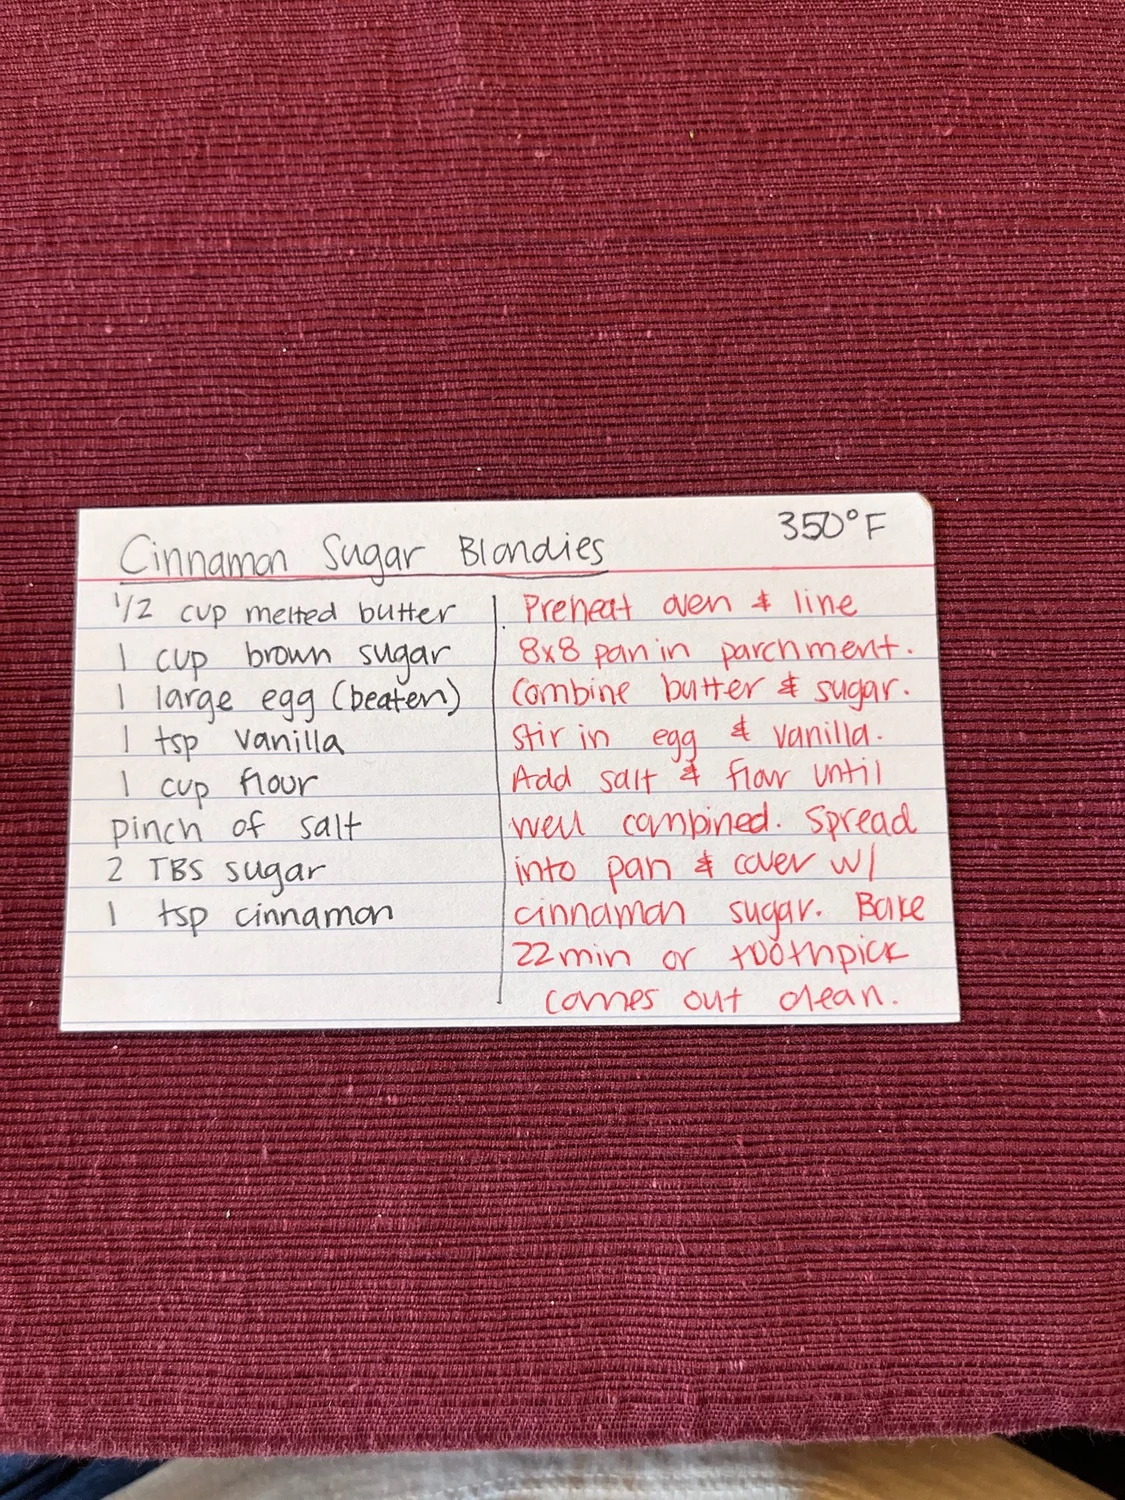 Cinnamon Sugar Blondies
350°F
1/2 cup melted butter
1 cup brown sugar
1 large egg (beaten)
1 tsp vanilla
1 cup flour
pinch of salt
2 TBS sugar
1 tsp cinnamon
Preheat oven & line
8x8 pan in parchment.
Combine butter & sugar.
Stir in egg & vanilla.
Add salt & flour until
well combined. Spread
into pan & cover w/
cinnamon sugar. Bake
22 min or toothpick
comes out clean.